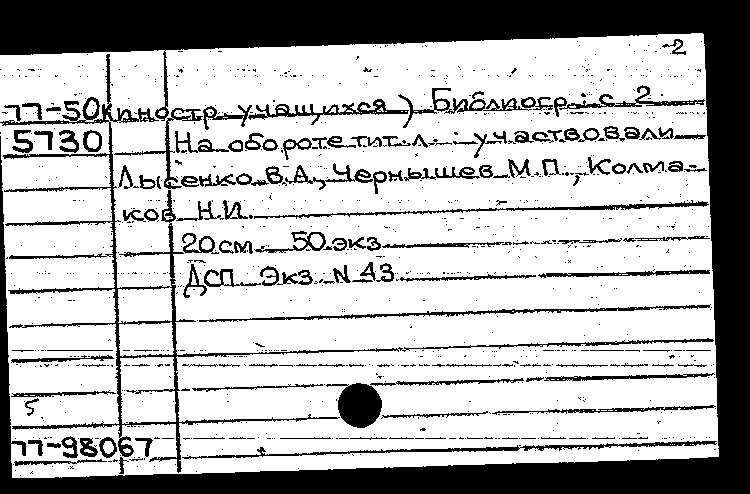 -2
77-50 иностр. учащихся) Библиогр.: с. 2.
5730 На обороте тит. л.: участвовали
Лысенко В.А., Чернышев М.П., Колма-
ков Н.И.
20 см. 50 экз
ДСП Экз. N 43
5
77-98067